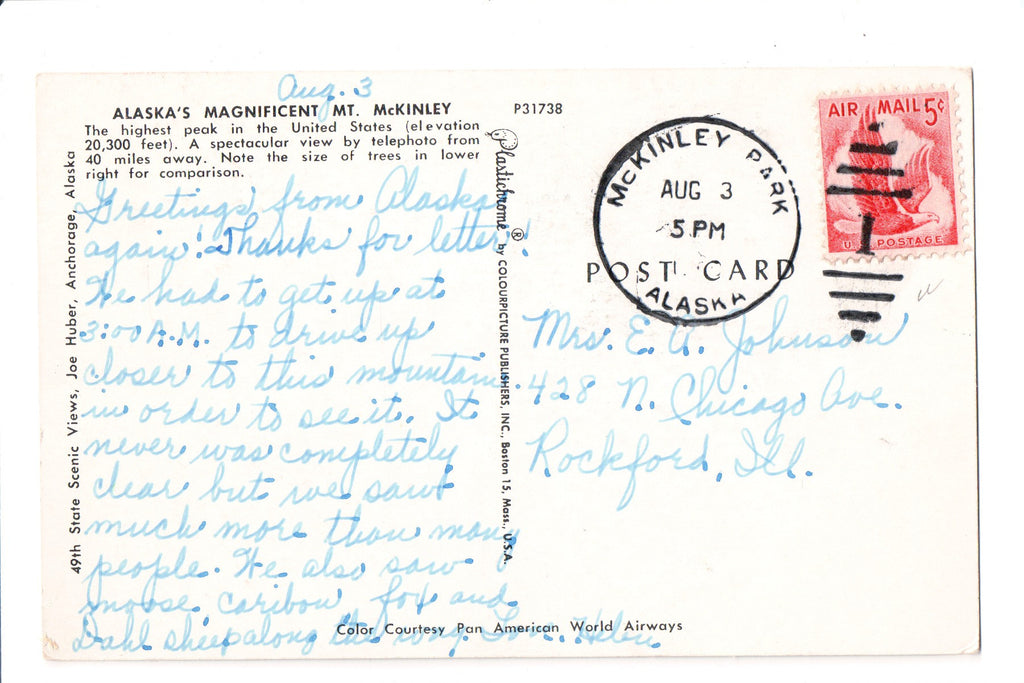 Aug. 3
ALASKA'S MAGNIFICENT MT. McKINLEY
The highest peak in the United States (elevation
20,300 feet). A spectacular view by telephoto from
40 miles away. Note the size of trees in lower
right for comparison.
P31738
Greetings from Alaska
again! Thanks for letter!
We had to get up at
3:00 A.M. to drive up
closer to this mountain
in order to see it. It
never was completely
clear but we saw
much more than many
people. We also saw
moose, caribou, fox and
Dahl sheep along the way. Love, Helen
49th State Scenic Views, Joe Huber, Anchorage, Alaska
Plastichrome ® by COLOURPICTURE PUBLISHERS, INC., Boston 15, Mass., U.S.A.
Color Courtesy Pan American World Airways
McKINLEY PARK
AUG 3
5 PM
ALASKA
POST CARD
AIR MAIL 5¢
U.S. POSTAGE
Mrs. E. A. Johnson
428 N. Chicago Ave.
Rockford, Ill.